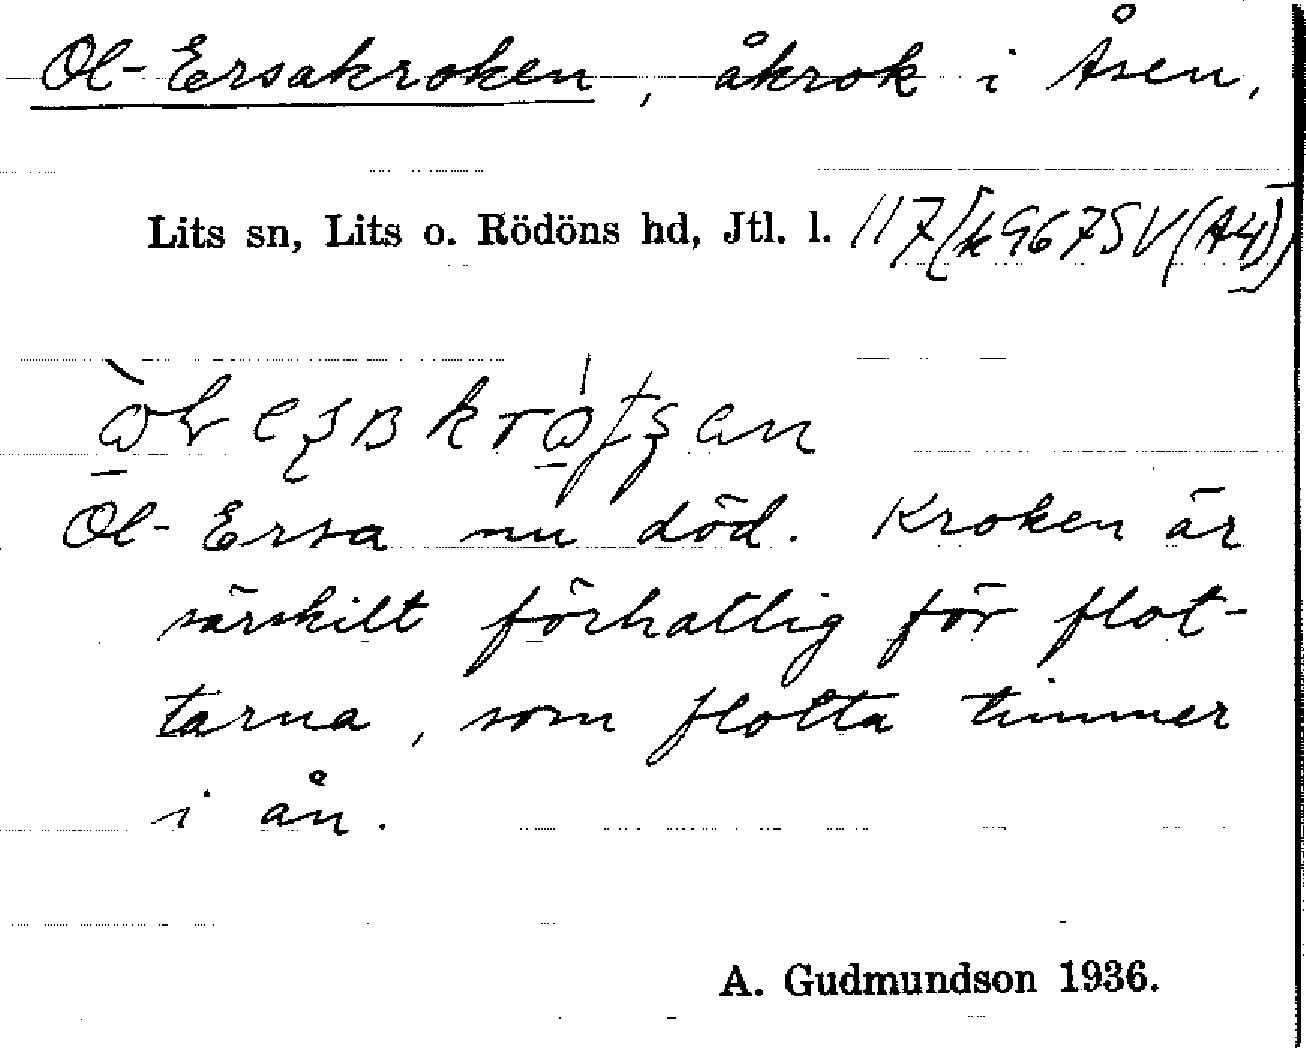 Ol-Ersakroken, åkrok i Åsen,
Lits sn, Lits o. Rödöns hd, Jtl. l. 117/[k967SV(A4)]
Ol-Ersa nu död. Kroken är
särskilt förhatlig för flot-
tarna, som flotta timmer
i ån.
A. Gudmundson 1936.